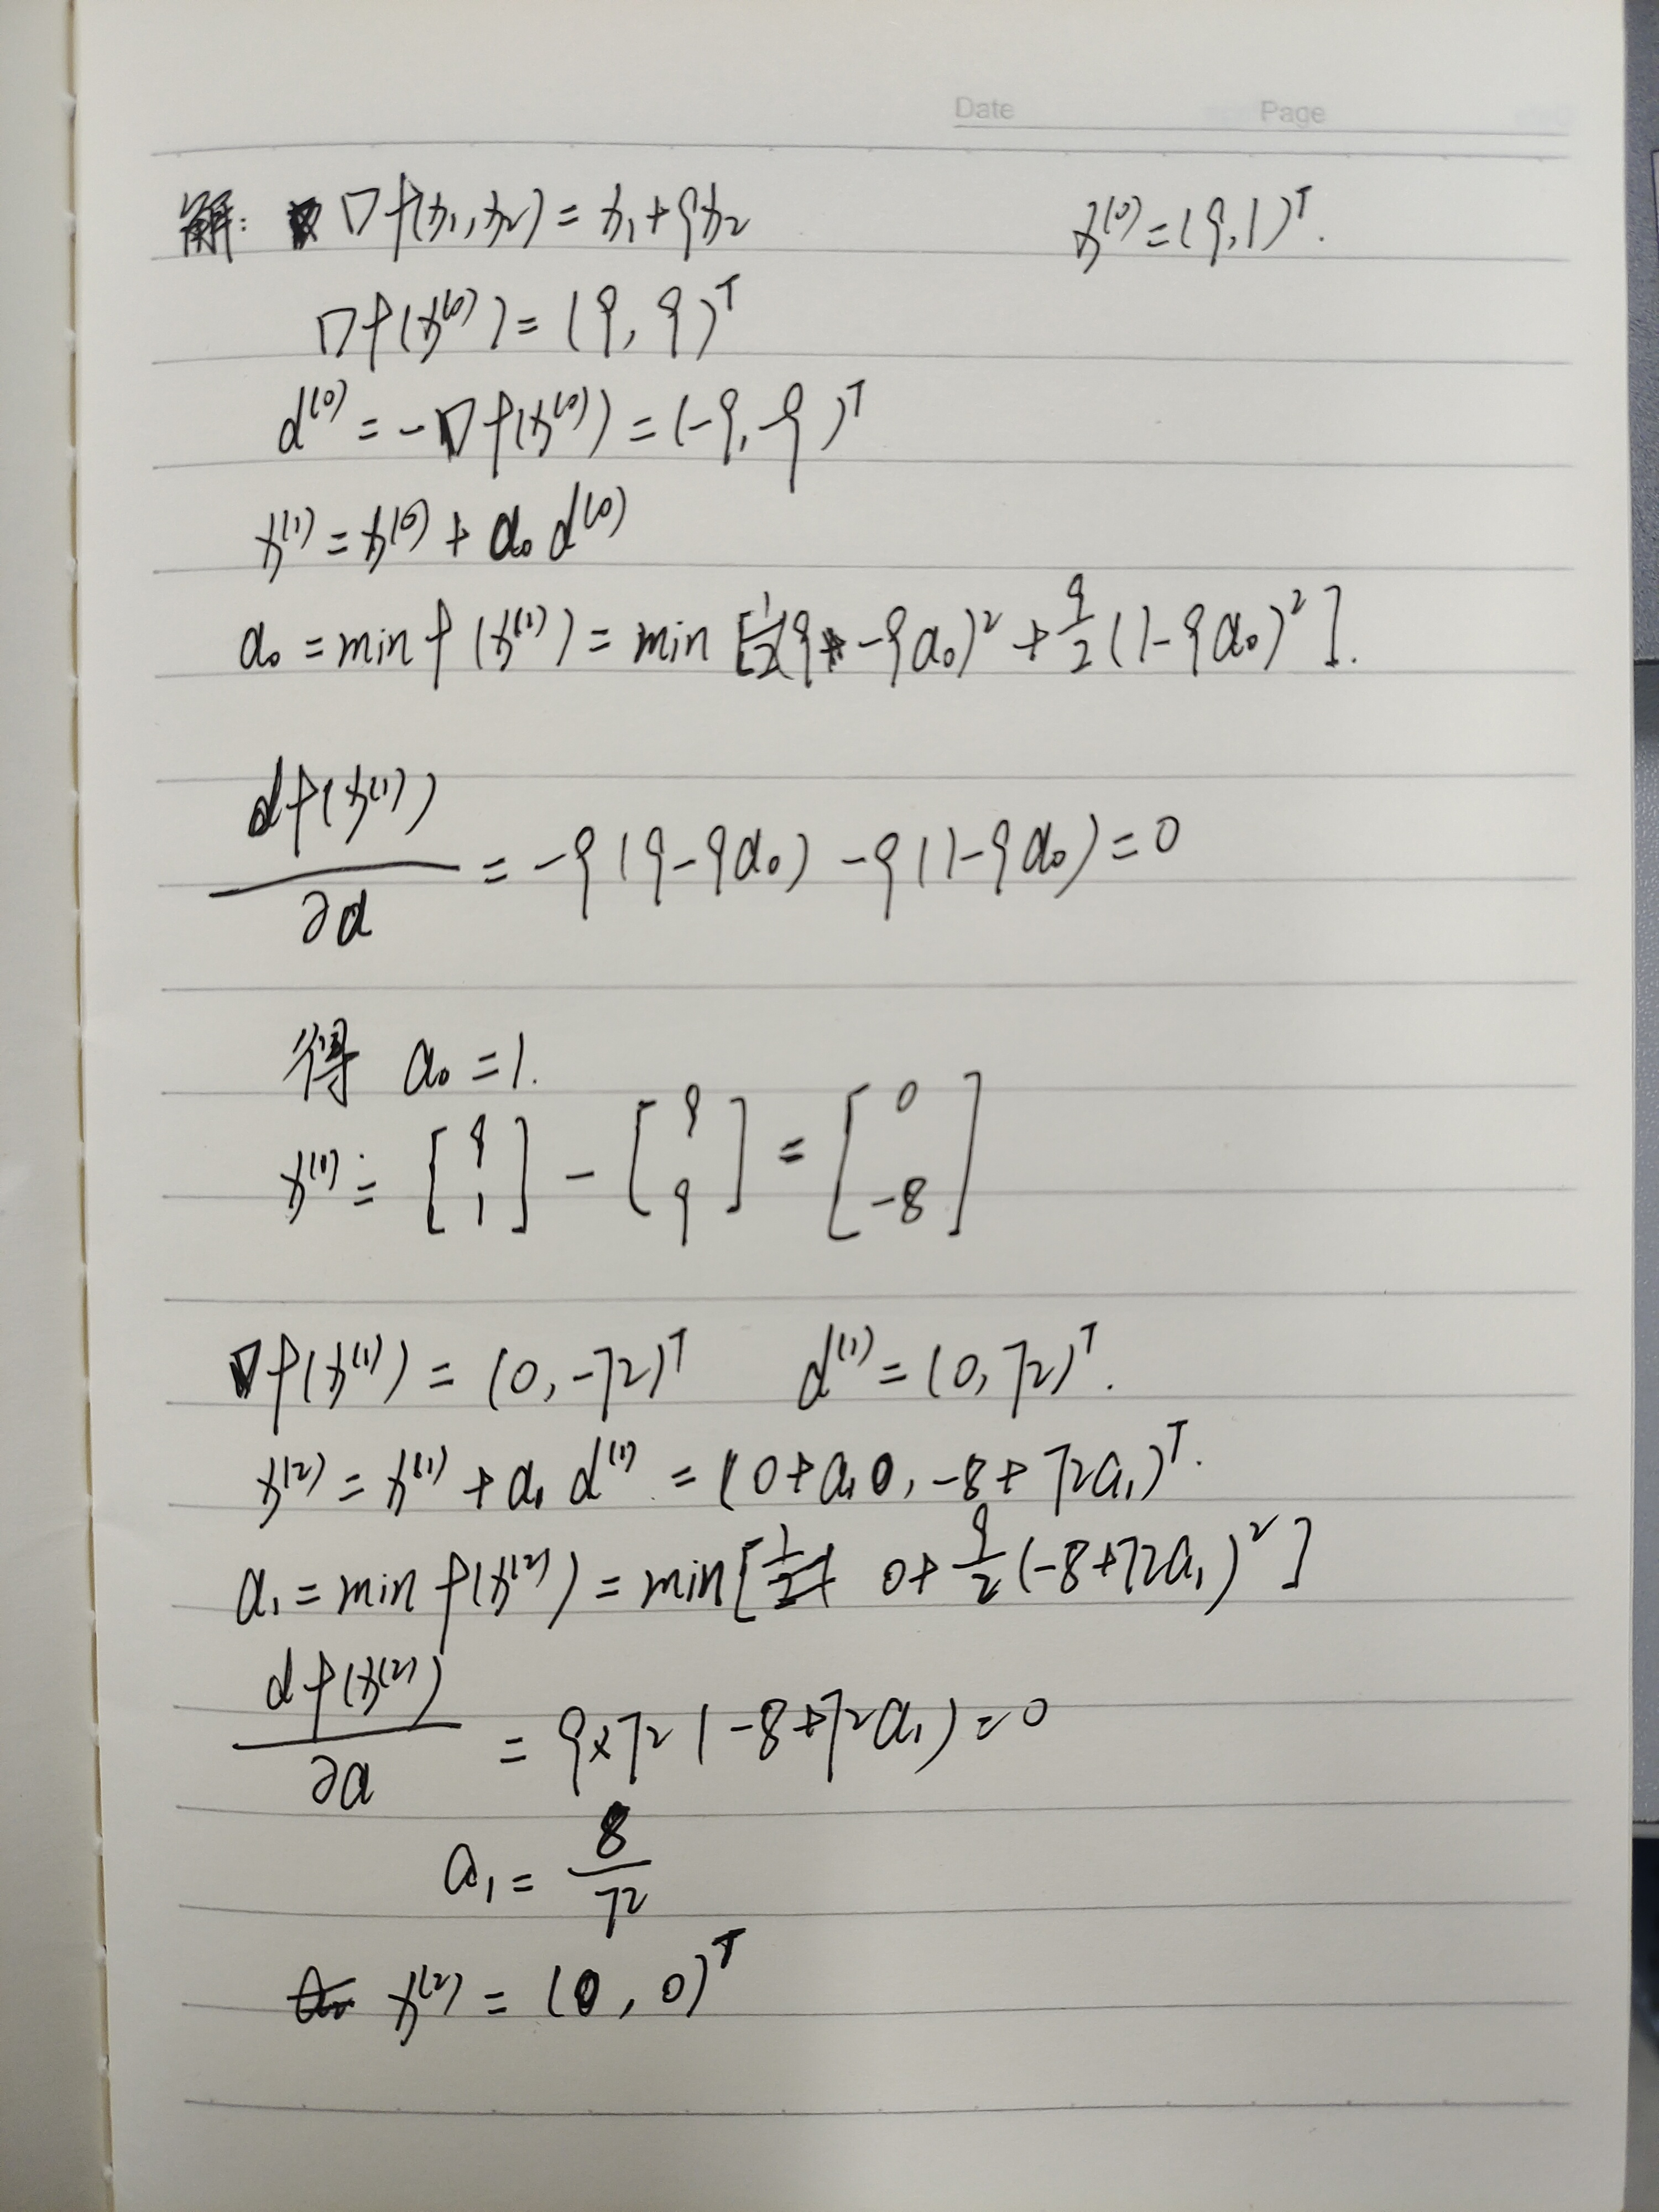 Date Page
解: ∇f(x₁,x₂) = x₁+9x₂ x⁽⁰⁾=(9,1)ᵀ.
∇f(x⁽⁰⁾) = (9, 9)ᵀ
d⁽⁰⁾ = -∇f(x⁽⁰⁾) = (-9, -9)ᵀ
x⁽¹⁾ = x⁽⁰⁾ + α₀ d⁽⁰⁾
α₀ = min f(x⁽¹⁾) = min [½(9-9α₀)² + 9/2 (1-9α₀)²].
df(x⁽¹⁾)/∂α = -9(9-9α₀) -9(1-9α₀) = 0
得 α₀ = 1.
x⁽¹⁾ = [9 1] - [9 9] = [0 -8]
∇f(x⁽¹⁾) = (0, -72)ᵀ d⁽¹⁾ = (0, 72)ᵀ.
x⁽²⁾ = x⁽¹⁾ + α₁ d⁽¹⁾ = (0+α₁0, -8+72α₁)ᵀ.
α₁ = min f(x⁽²⁾) = min[0+ 9/2 (-8+72α₁)²]
df(x⁽²⁾)/∂α = 9×72(-8+72α₁) = 0
α₁ = 8/72
x⁽²⁾ = (0, 0)ᵀ